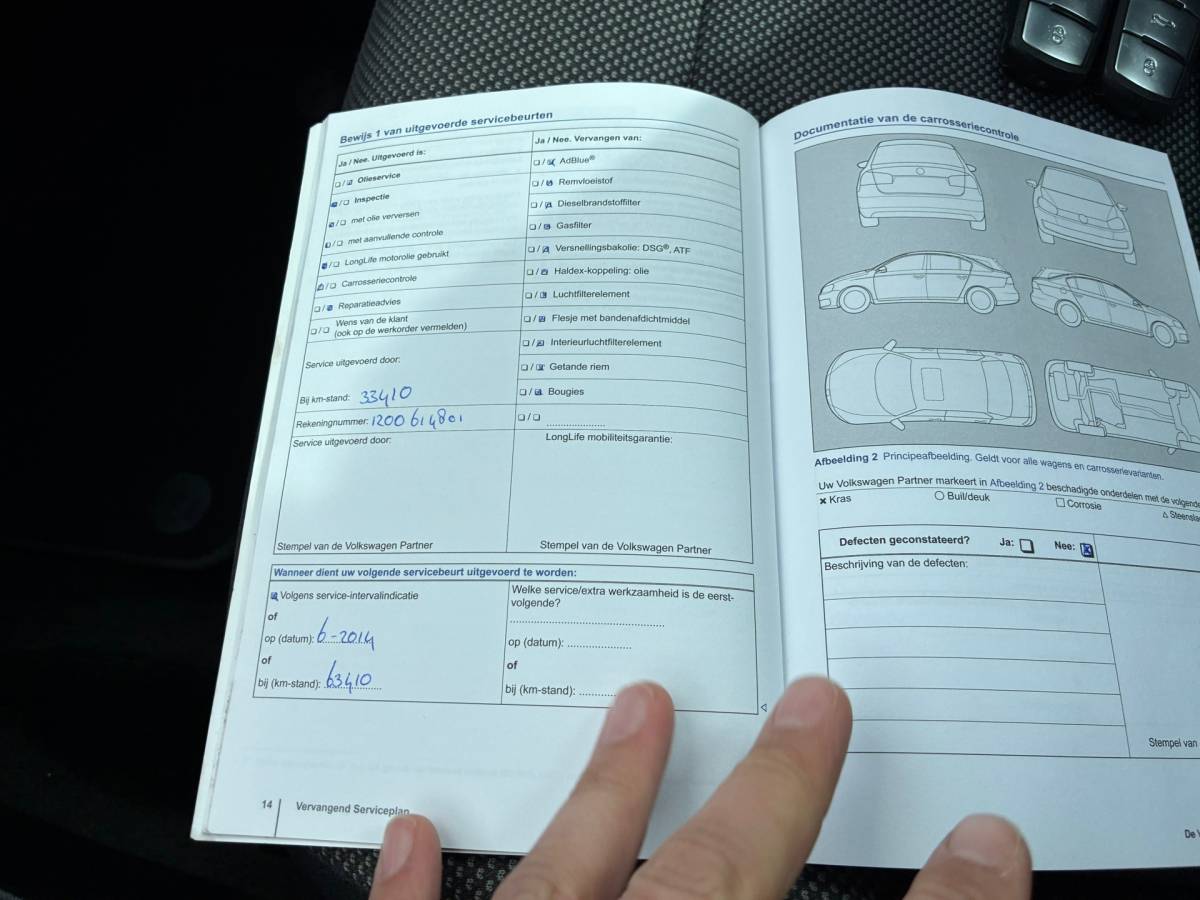 Bewijs 1 van uitgevoerde servicebeurten
Ja / Nee. Uitgevoerd is:
Olieservice
Inspectie
met olie verversen
met aanvullende controle
LongLife motorolie gebruikt
Carrosseriecontrole
Reparatieadvies
Wens van de klant
(ook op de werkorder vermelden)
Service uitgevoerd door:
Bij km-stand: 33410
Rekeningnummer: 1200614801
Service uitgevoerd door:
Stempel van de Volkswagen Partner
Ja / Nee. Vervangen van:
AdBlue®
Remvloeistof
Dieselbrandstoffilter
Gasfilter
Versnellingsbakolie: DSG®, ATF
Haldex-koppeling: olie
Luchtfilterelement
Flesje met bandenafdichtmiddel
Interieurluchtfilterelement
Getande riem
Bougies
LongLife mobiliteitsgarantie:
Stempel van de Volkswagen Partner
Wanneer dient uw volgende servicebeurt uitgevoerd te worden:
Volgens service-intervalindicatie
of
op (datum): 6-2014
of
bij (km-stand): 63410
Welke service/extra werkzaamheid is de eerst-
volgende?
op (datum):
of
bij (km-stand):
14 Vervangend Serviceplan
Documentatie van de carrosseriecontrole
Afbeelding 2 Principeafbeelding. Geldt voor alle wagens en carrosserievarianten.
Uw Volkswagen Partner markeert in Afbeelding 2 beschadigde onderdelen met de volgende
Kras Buil/deuk Corrosie
Defecten geconstateerd? Ja: Nee:
Beschrijving van de defecten:
Stempel van
De